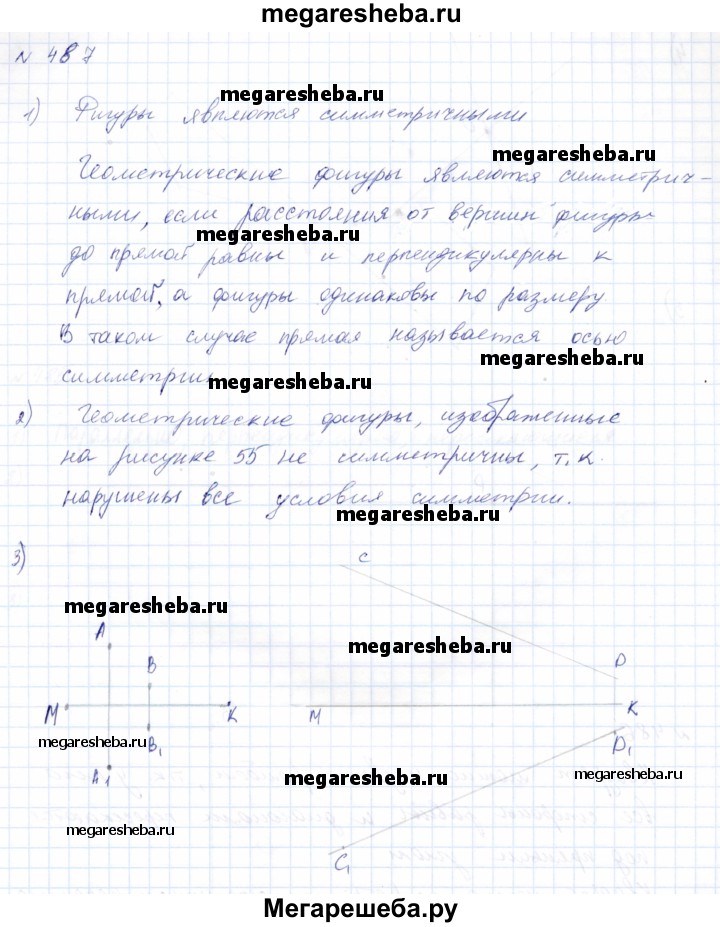 megaresheba.ru
N 487
megaresheba.ru
1) Фигуры являются симметричными
megaresheba.ru
Геометрические фигуры являются симметрич-
ными, если расстояния от вершин фигуры
megaresheba.ru
до прямой равны и перпендикулярны к
прямой, а фигуры одинаковы по размеру.
В таком случае прямая называется осью
megaresheba.ru
симметрии
megaresheba.ru
2) Геометрические фигуры, изображенные
на рисунке 55 не симметричны, т.к.
нарушены все условия симметрии.
megaresheba.ru
3)
C
megaresheba.ru
A
megaresheba.ru
B
D
M
K
M
K
megaresheba.ru
B1
D1
A1
megaresheba.ru
megaresheba.ru
megaresheba.ru
C1
Мегарешеба.ру